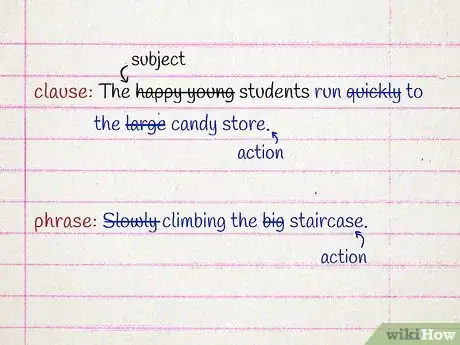 subject
clause: The happy young students run quickly to
the large candy store.
action
phrase: Slowly climbing the big staircase.
action
wikiHow